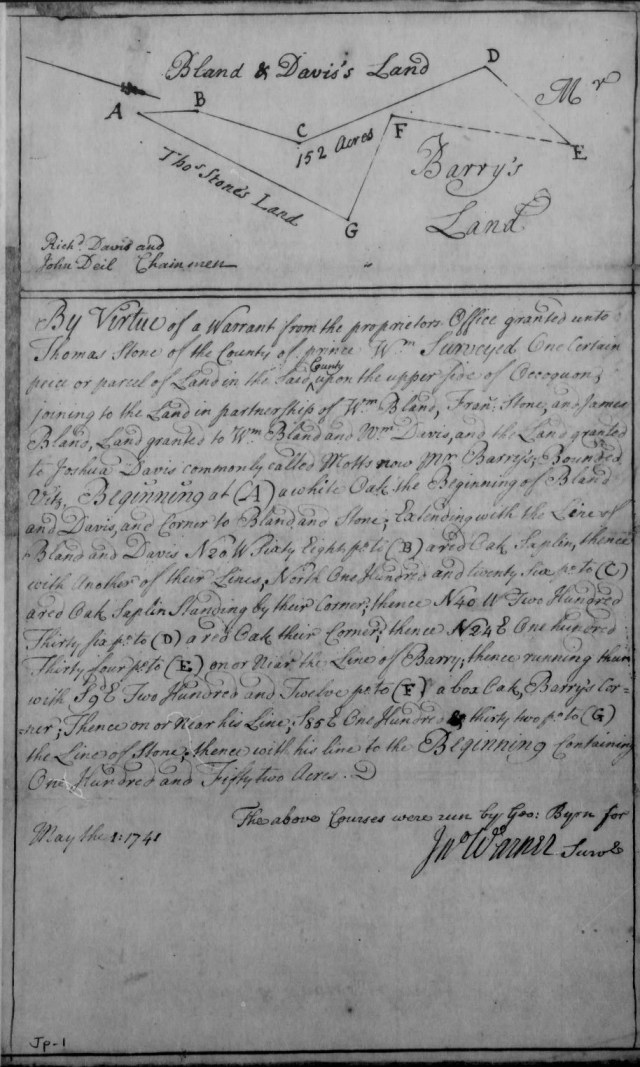 Bland & Davis's Land
D
Mr
A
B
C
152 Acres
F
E
Thos Stone's Land
Barry's
Land
G
Richd. Davis and
John Deil Chainmen
By Virtue of a Warrant from the proprietors Office granted unto
Thomas Stone of the County of prince Wm Surveyed One Certain
piece or parcel of Land in the Said County upon the upper side of Occoquon,
joining to the Land in partnership of Wm Bland, Fran: Stone, and James
Bland, Land granted to Wm Bland and Wm Davis, and the Land granted
to Joshua Davis commonly called Motts now Mr Barry's; Bounded
Vizt. Beginning at (A) a white Oak the Beginning of Bland
and Davis, and Corner to Bland and Stone; Extending with the Line of
Bland and Davis N20W Sixty Eight po. to (B) a red Oak Saplin, thence
with Another of their Lines, North One Hundred and twenty Six po. to (C)
a red Oak Saplin Standing by their Corner; thence N40W Two Hundred
Thirty six po. to (D) a red Oak their Corner; thence N24E One hundred
Thirty four po. to (E) on or Near the Line of Barry; thence running
with S9E Two Hundred and Twelve po. to (F) a box Oak, Barry's Cor=
=ner; Thence on or near his Line, S55E One Hundred thirty two po. to (G)
the Line of Stone; thence with his line to the Beginning Containing
One Hundred and Fifty two Acres.
The above Courses were run by Geo: Byrn for
May the 1: 1741
Jno Warner Surv
Jp-1